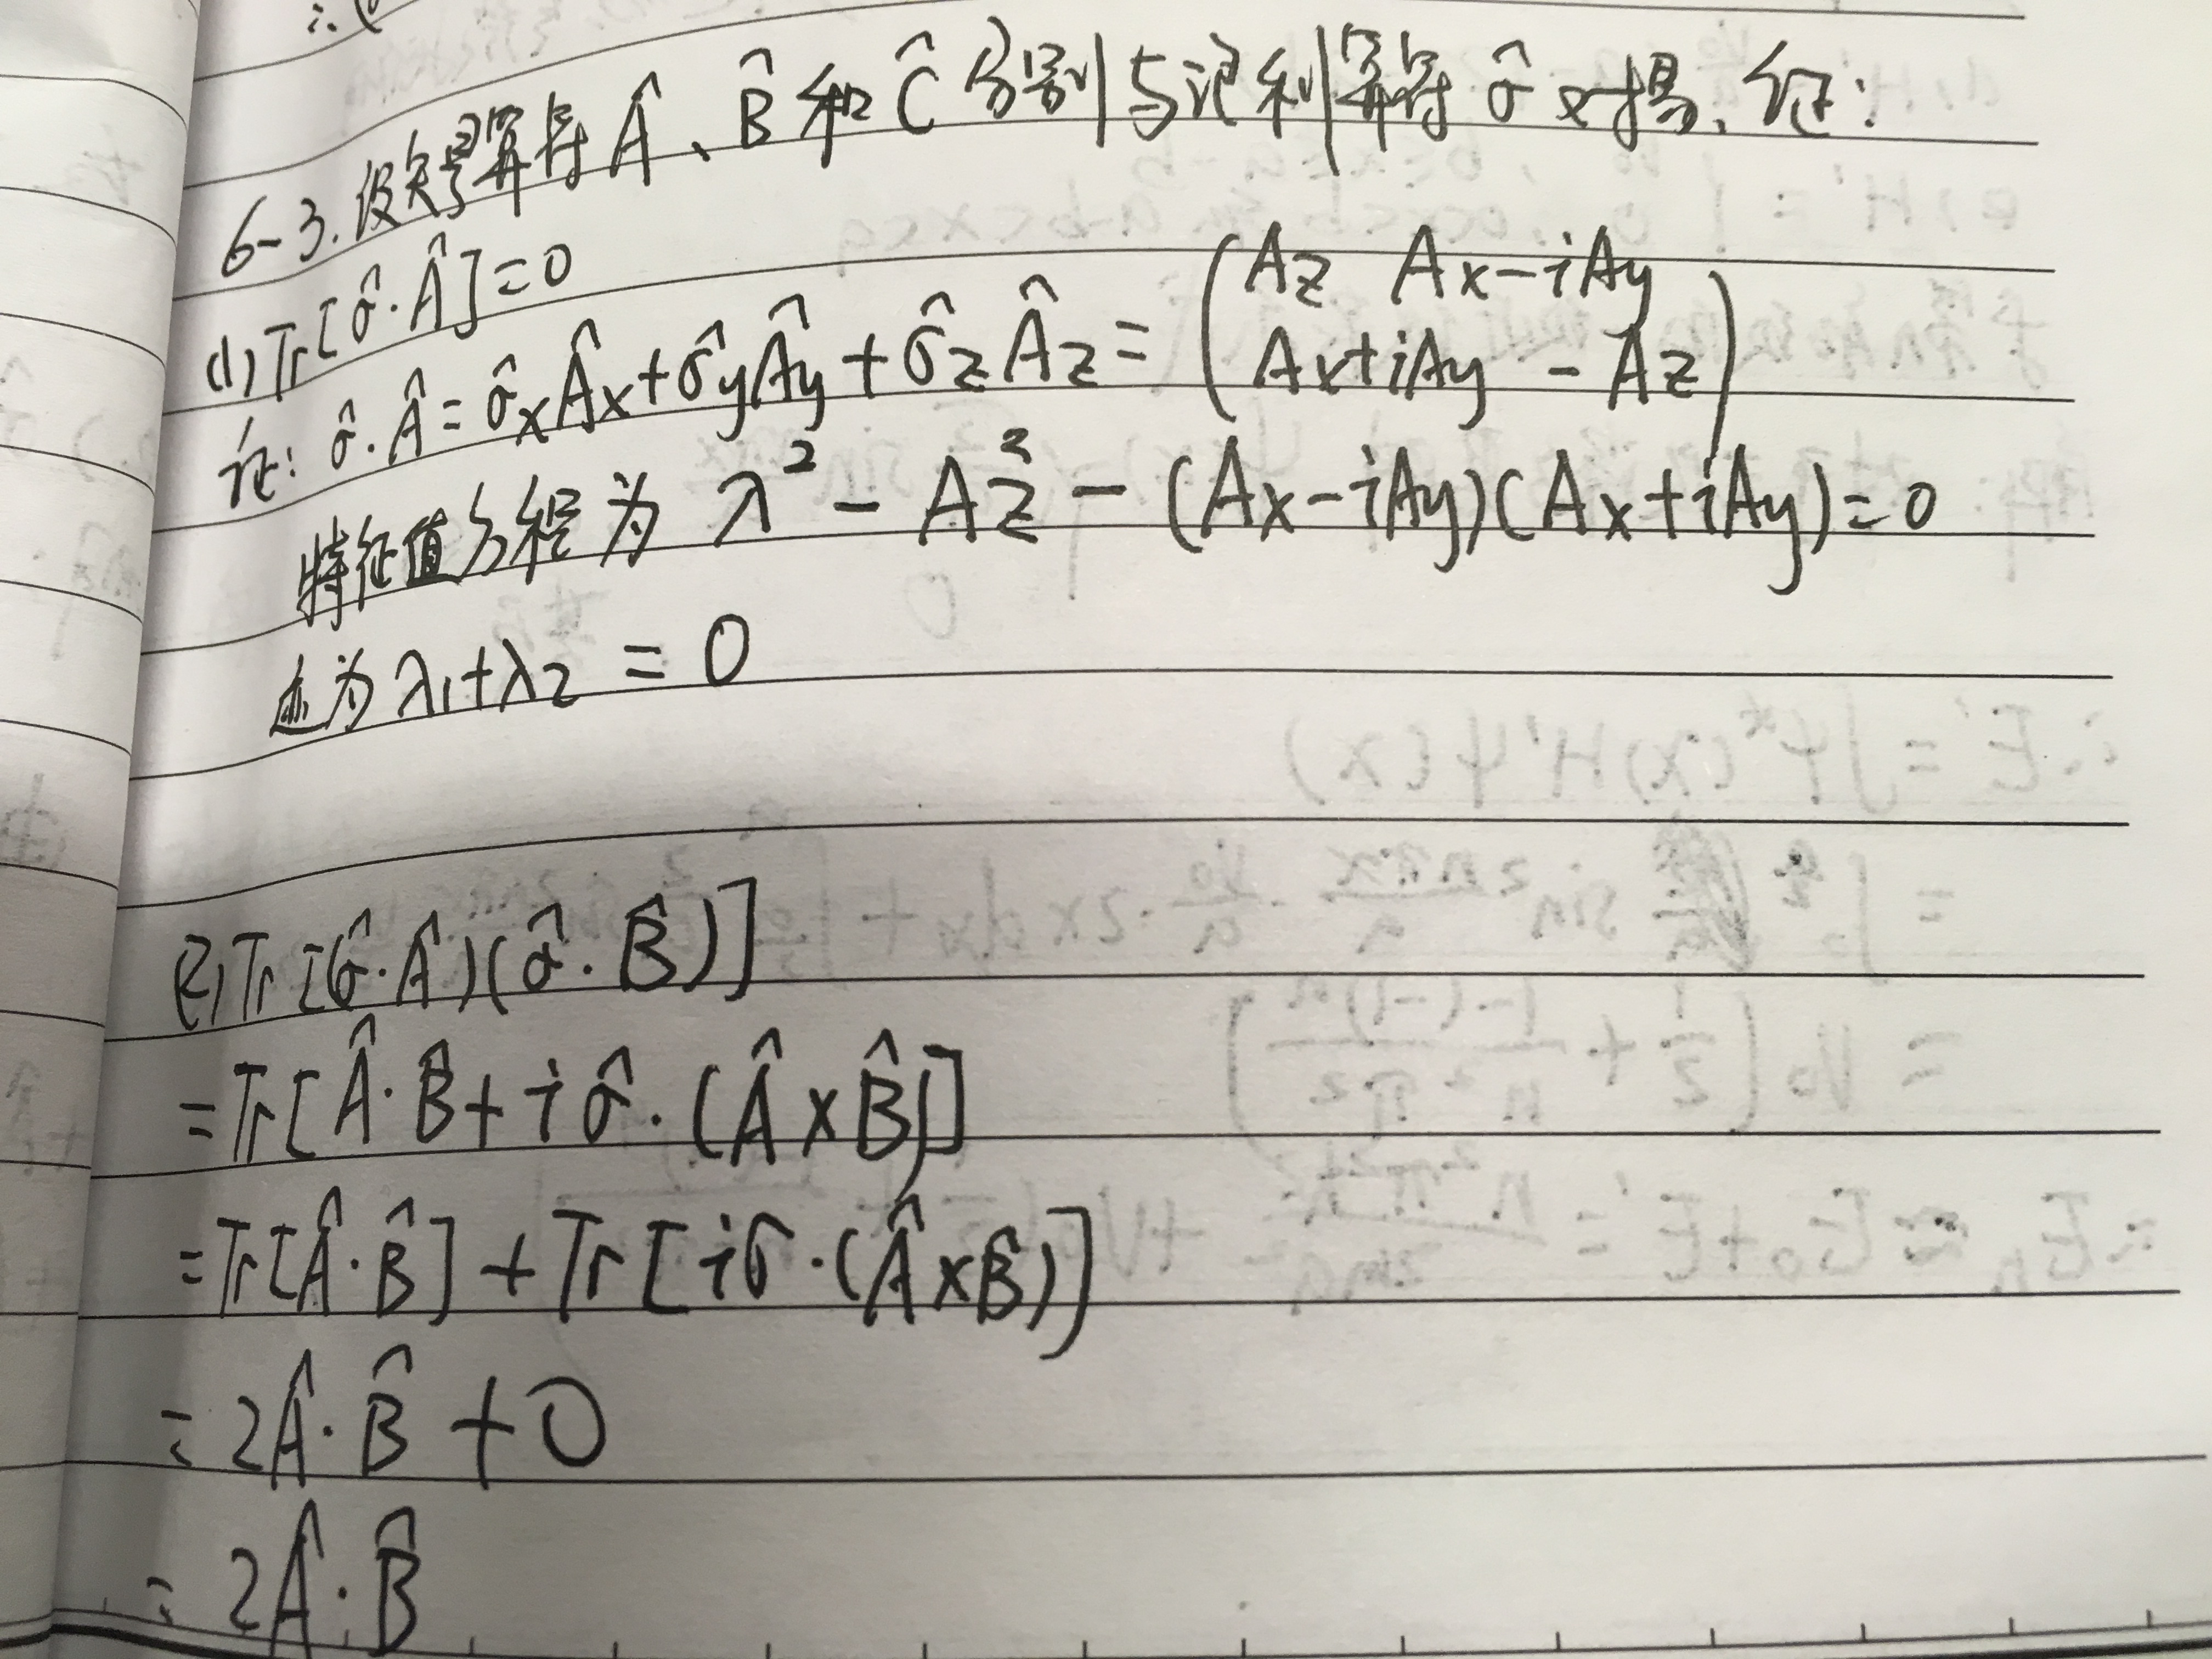 6-3. 设矢量算符 Â、B̂ 和 Ĉ 分别与泡利算符 σ̂ 对易, 证:
(1) Tr[σ̂·Â]=0
证: σ̂·Â = σ̂xÂx+σ̂yÂy+σ̂zÂz = (Az Ax-iAy
Ax+iAy -Az)
特征值方程为 λ² - Az² - (Ax-iAy)(Ax+iAy)=0
迹为 λ1+λ2 = 0
(2) Tr[(σ̂·Â)(σ̂·B̂)]
=Tr[Â·B̂+iσ̂·(Â×B̂)]
=Tr[Â·B̂]+Tr[iσ̂·(Â×B̂)]
= 2Â·B̂+0
= 2Â·B̂